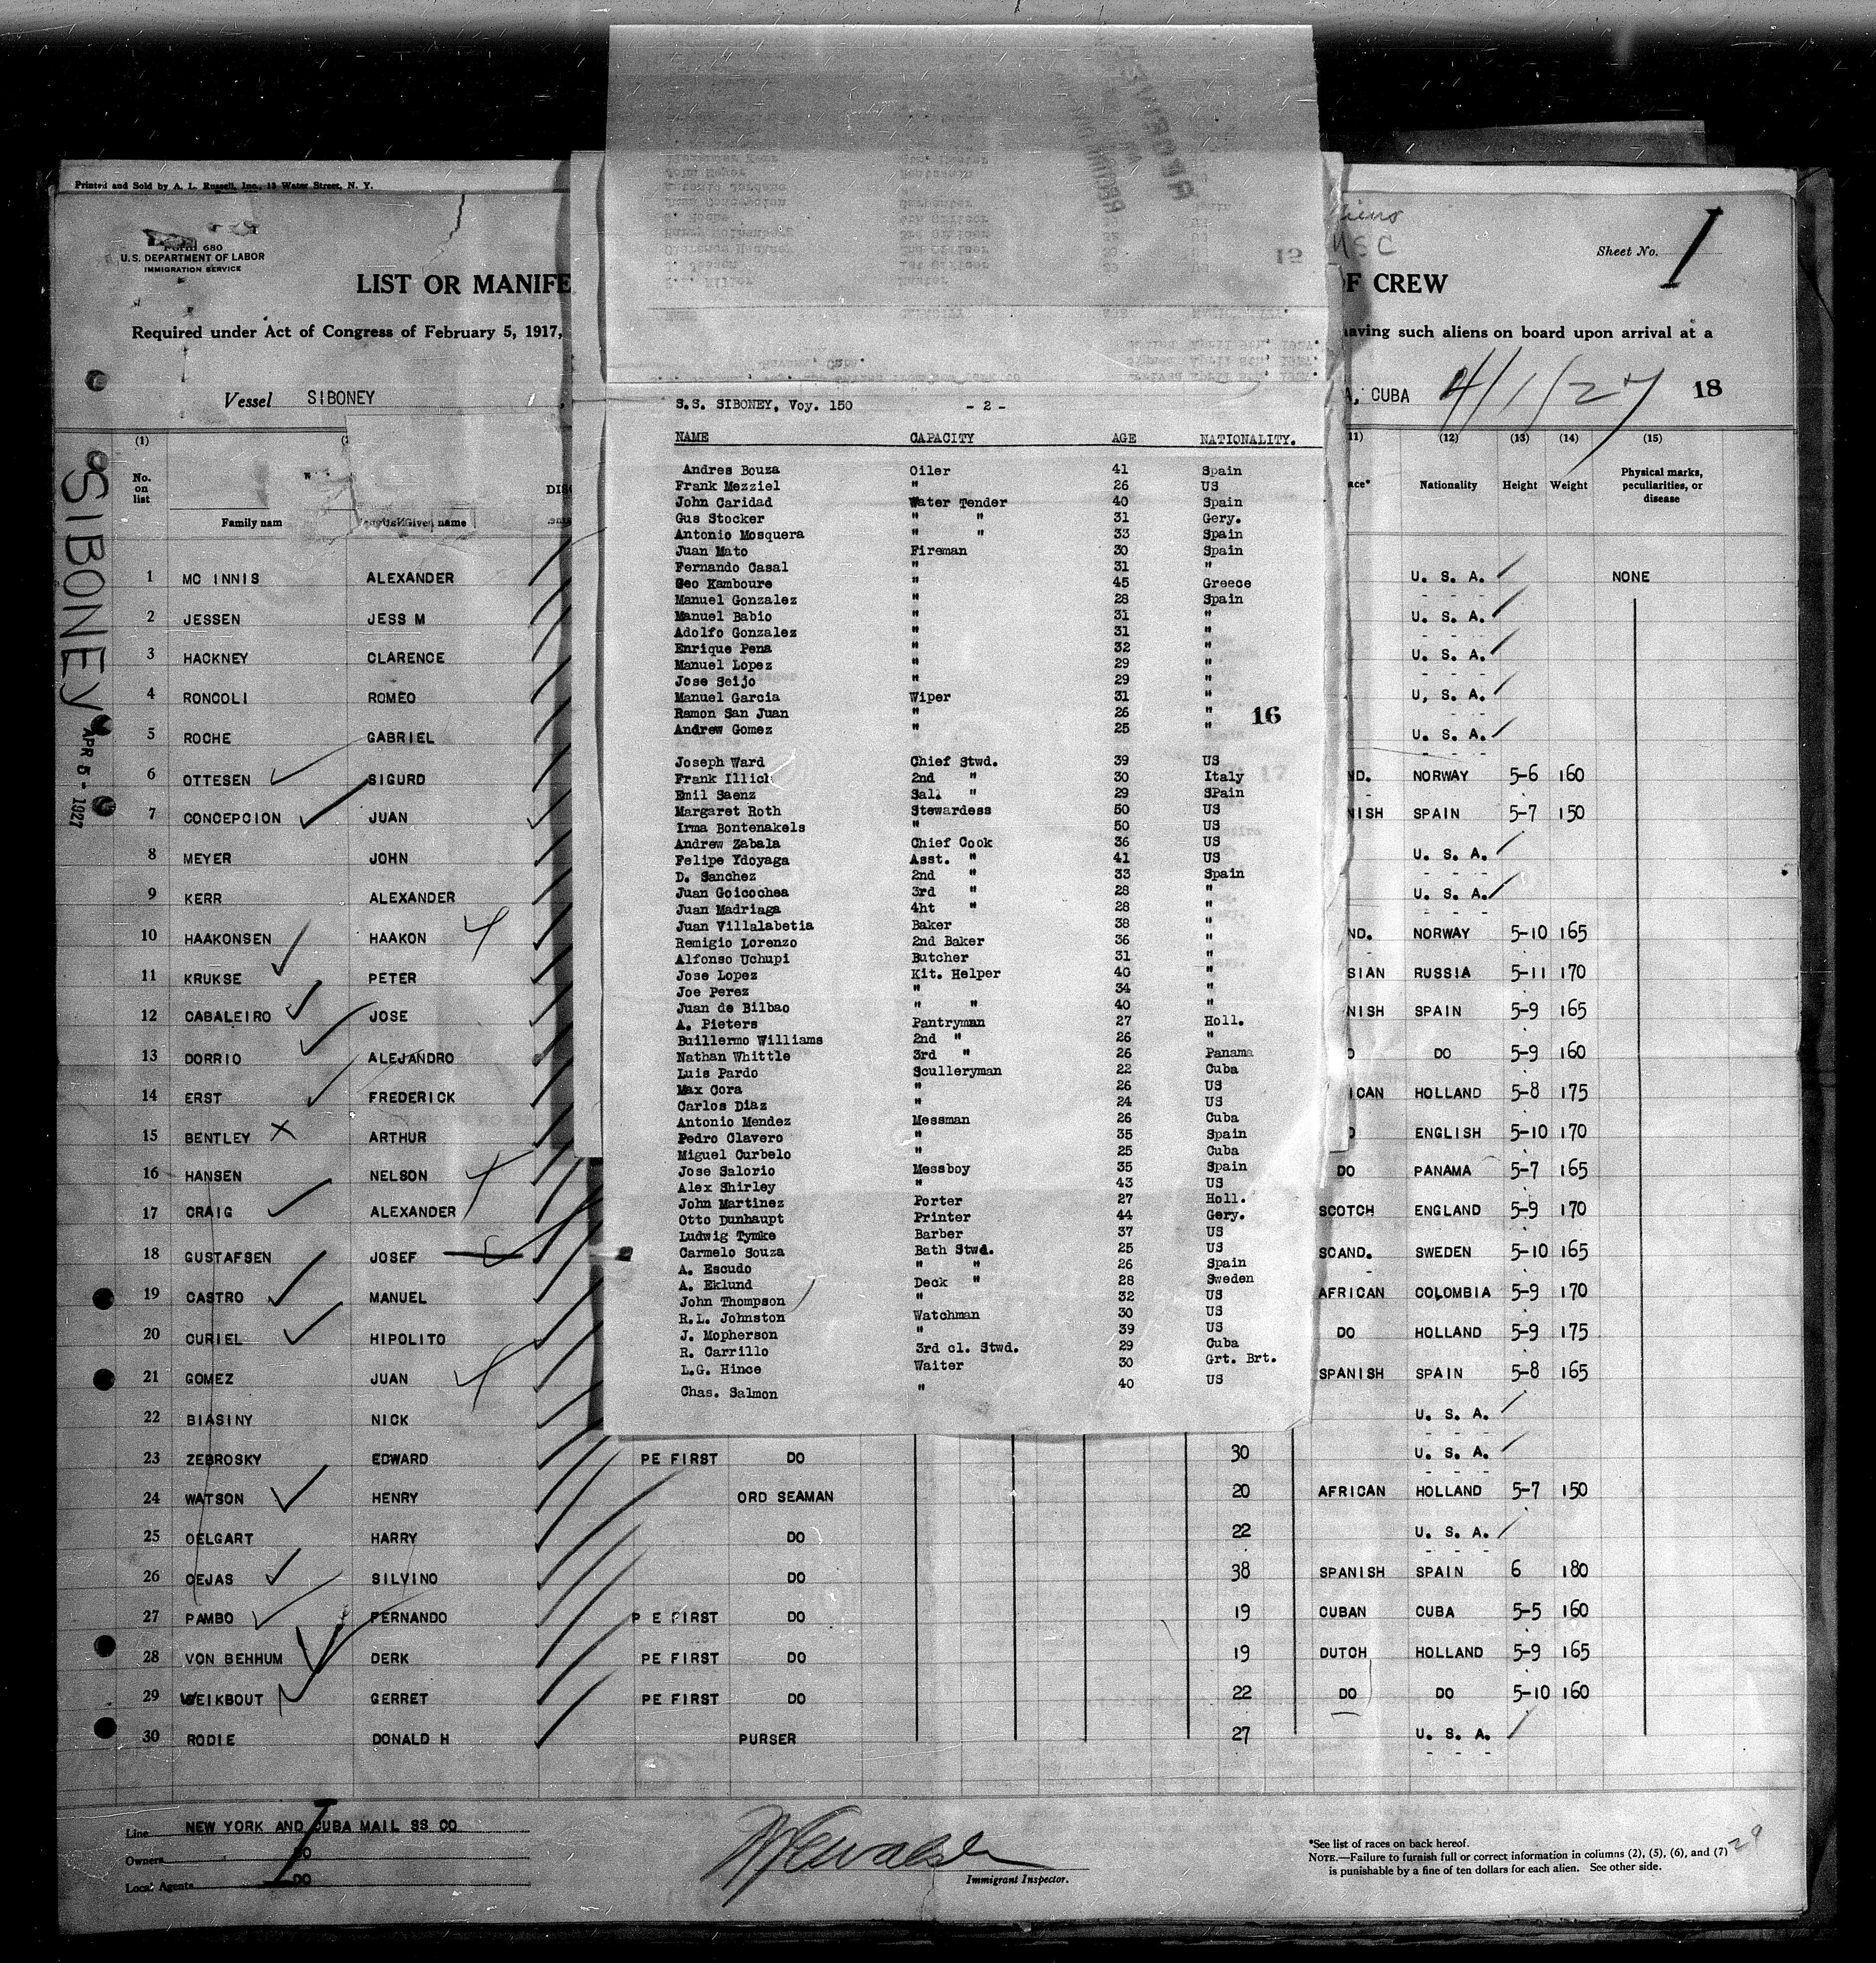 Printed and Sold by A. L. Russell, Inc., 13 Water Street, N. Y.
Form 680
U.S. DEPARTMENT OF LABOR
IMMIGRATION SERVICE
Sheet No. 1
LIST OR MANIFE
OF CREW
Required under Act of Congress of February 5, 1917,
having such aliens on board upon arrival at a
Vessel SIBONEY
A, CUBA 4/1/27 18
SIBONEY
APR 5 - 1927
(1) (11) (12) (13) (14) (15)
No. on list
Family nam Given name
Nationality Height Weight Physical marks, peculiarities, or disease
S.S. SIBONEY, Voy. 150 - 2 -
NAME CAPACITY AGE NATIONALITY.
Andres Bouza Oiler 41 Spain
Frank Mezziel " 26 US
John Caridad Water Tender 40 Spain
Gus Stocker " " 31 Gery.
Antonio Mosquera " " 33 Spain
Juan Mato Fireman 30 Spain
Fernando Casal " 31 "
Geo Kamboure " 45 Greece
Manuel Gonzalez " 28 Spain
Manuel Babio " 31 "
Adolfo Gonzalez " 31 "
Enrique Pena " 32 "
Manuel Lopez " 29 "
Jose Seijo " 29 "
Manuel Garcia Wiper 31 "
Ramon San Juan " 26 " 16
Andrew Gomez " 25 "
Joseph Ward Chief Stwd. 39 US
Frank Illich 2nd " 30 Italy
Emil Saenz Sal. " 29 SPain
Margaret Roth Stewardess 50 US
Irma Bontenakels " 50 US
Andrew Zabala Chief Cook 36 US
Felipe Ydoyaga Asst. " 41 US
D. Sanchez 2nd " 33 Spain
Juan Goicochea 3rd " 28 "
Juan Madriaga 4ht " 28 "
Juan Villalabetia Baker 38 "
Remigio Lorenzo 2nd Baker 36 "
Alfonso Uchupi Butcher 31 "
Jose Lopez Kit. Helper 40 "
Joe Perez " 34 "
Juan de Bilbao " " 40 "
A. Pieters Pantryman 27 Holl.
Buillermo Williams 2nd " 26 "
Nathan Whittle 3rd " 26 Panama
Luis Pardo Sculleryman 22 Cuba
Max Cora " 26 US
Carlos Diaz " 24 US
Antonio Mendez Messman 26 Cuba
Pedro Clavero " 35 Spain
Miguel Curbelo " 25 Cuba
Jose Salorio Messboy 35 Spain
Alex Shirley " 43 US
John Martinez Porter 27 Holl.
Otto Dunhaupt Printer 44 Gery.
Ludwig Tymke Barber 37 US
Carmelo Souza Bath Stwd. 25 US
A. Escudo " " 26 Spain
A. Eklund Deck " 28 Sweden
John Thompson " 32 US
R.L. Johnston Watchman 30 US
J. Mopherson " 39 US
R. Carrillo 3rd cl. Stwd. 29 Cuba
L.G. Hince Waiter 30 Grt. Brt.
Chas. Salmon " 40 US
1 MC INNIS ALEXANDER U. S. A. NONE
2 JESSEN JESS M U. S. A.
3 HACKNEY CLARENCE U. S. A.
4 RONCOLI ROMEO U, S. A.
5 ROCHE GABRIEL U. S. A.
6 OTTESEN SIGURD ND. NORWAY 5-6 160
7 CONCEPCION JUAN NISH SPAIN 5-7 150
8 MEYER JOHN U. S. A.
9 KERR ALEXANDER U. S. A.
10 HAAKONSEN HAAKON ND. NORWAY 5-10 165
11 KRUKSE PETER SIAN RUSSIA 5-11 170
12 CABALEIRO JOSE NISH SPAIN 5-9 165
13 DORRIO ALEJANDRO O DO 5-9 160
14 ERST FREDERICK ICAN HOLLAND 5-8 175
15 BENTLEY ARTHUR O ENGLISH 5-10 170
16 HANSEN NELSON DO PANAMA 5-7 165
17 CRAIG ALEXANDER SCOTCH ENGLAND 5-9 170
18 GUSTAFSEN JOSEF SCAND. SWEDEN 5-10 165
19 CASTRO MANUEL AFRICAN COLOMBIA 5-9 170
20 CURIEL HIPOLITO DO HOLLAND 5-9 175
21 GOMEZ JUAN SPANISH SPAIN 5-8 165
22 BIASINY NICK U. S. A.
23 ZEBROSKY EDWARD PE FIRST DO 30 U. S. A.
24 WATSON HENRY ORD SEAMAN 20 AFRICAN HOLLAND 5-7 150
25 OELGART HARRY DO 22 U. S. A.
26 CEJAS SILVINO DO 38 SPANISH SPAIN 6 180
27 PAMBO FERNANDO P E FIRST DO 19 CUBAN CUBA 5-5 160
28 VON BEHHUM DERK PE FIRST DO 19 DUTCH HOLLAND 5-9 165
29 WEIKBOUT GERRET PE FIRST DO 22 DO DO 5-10 160
30 RODIE DONALD H PURSER 27 U. S. A.
Line NEW YORK AND CUBA MAIL SS CO
Owners DO
Local Agents DO
Immigrant Inspector.
*See list of races on back hereof.
NOTE.—Failure to furnish full or correct information in columns (2), (5), (6), and (7)
is punishable by a fine of ten dollars for each alien. See other side.
29